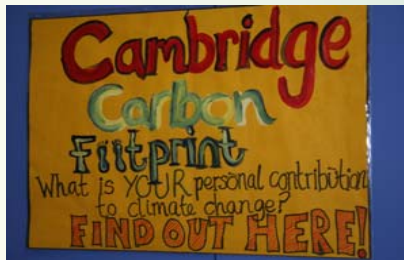 Cambridge
Carbon
Footprint
What is YOUR personal contribution
to climate change?
FIND OUT HERE!